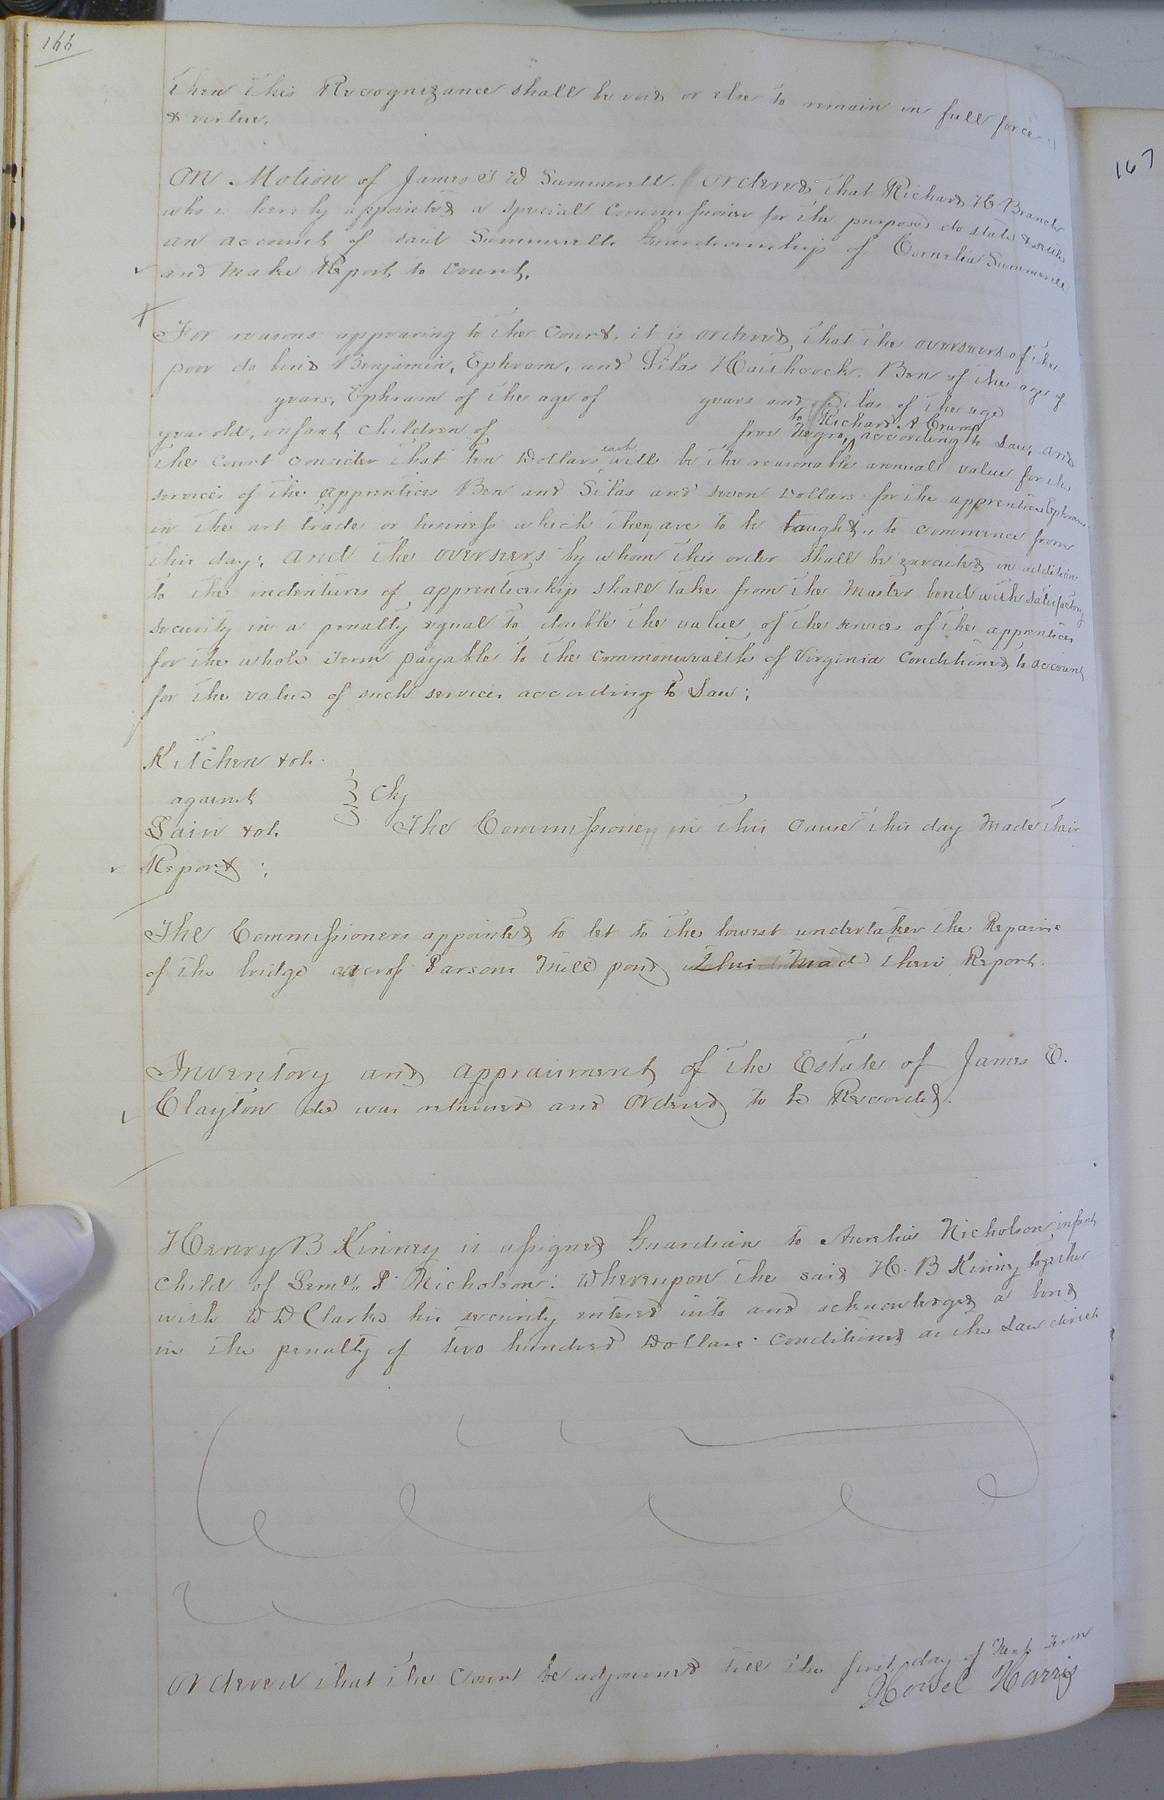 166
Then this Recognizance shall be void or else to remain in full force
& virtue.
On Motion of James T W Summerell. Ordered that Richard H Branch
who is hereby appointed a special Commissioner for the purpose do state & settle
an account of said Summerell Guardianship of Cornelia Summerell
and make Report to Court.
For reasons appearing to the Court, it is ordered, that the overseers of the
poor do bind Benjamin, Ephram, and Silas Haithcock. Ben of the age of
years, Ephram of the age of years and Silas of the age
to Richard A Crump
years old, infant children of free Negro, according to Law, and
the Court consider that Ten Dollars each will be the reasonable annual value for the
services of the apprentices Ben and Silas and seven Dollars for the apprentice Ephram
in the art trade or business which they are to be taught, to commence from
this day; And the overseers by whom this order shall be executed in addition
to the indentures of apprenticeship shall take from the Master bond with satisfactory
security in a penalty equal to double the value of the services of the apprentices
for the whole term payable to the Commonwealth of Virginia Conditioned to account
for the value of such services according to Law;
Kitchen & ol.
against } Chy
Lain & ol. The Commissioners in this cause this day made their
Report;
The Commissioners appointed to let to the lowest undertaker the Repairs
of the bridge across Parsons Mill pond made their Report.
Inventory and appraisment of the Estate of James E.
Clayton de was returned and Ordered to be Recorded.
Henry B Kinney is assigned Guardian to Aurelia Nicholson, infant
child of Leml. P. Nicholson; Whereupon the said H. B Kinney together
with W D Clarke his security entered into and acknowledged a bond
in the penalty of two hundred Dollars conditioned as the Law directs
Ordered that the Court be adjourned till the first day of Next Term
Howel Harris
167